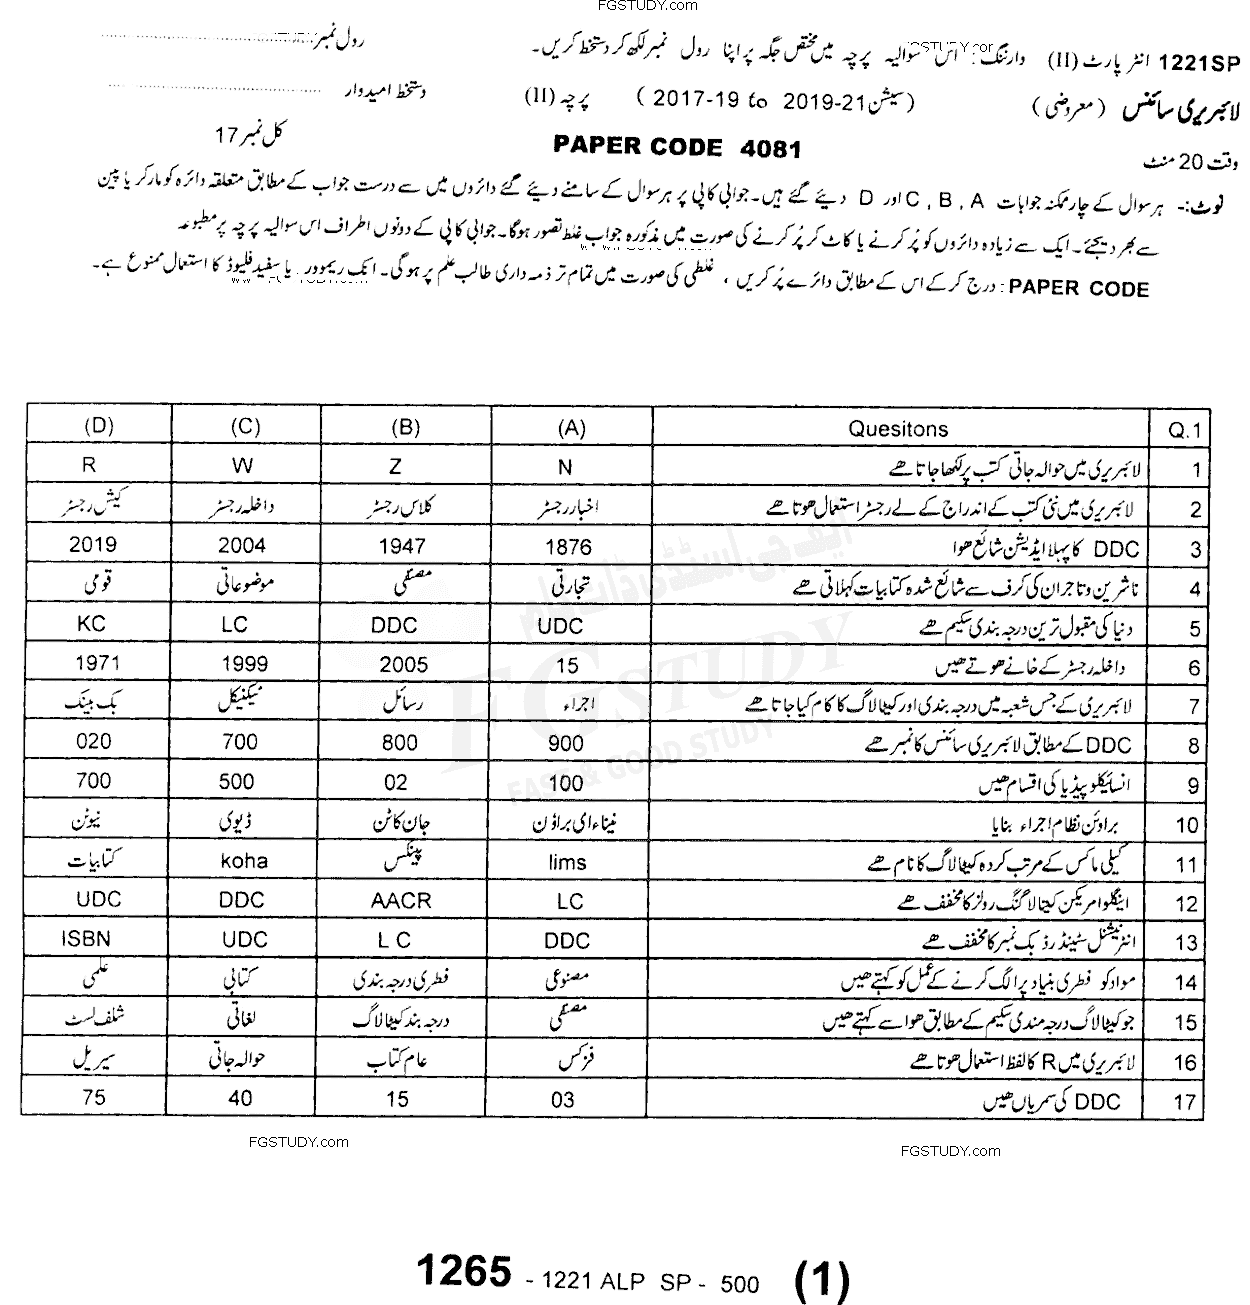 FGSTUDY.com
1221SP انٹر پارٹ (II) وارننگ: اس سوالیہ پرچہ میں مختص جگہ پر اپنا رول نمبر لکھ کر دستخط کریں۔ رول نمبر
لائبریری سائنس (معروضی) (سیشن 2017-19 to 2019-21) پرچہ (II) دستخط امیدوار
وقت 20 منٹ PAPER CODE 4081 کل نمبر 17
نوٹ:- ہر سوال کے چار ممکنہ جوابات A , B , C اور D دیئے گئے ہیں۔ جوابی کاپی پر ہر سوال کے سامنے دیئے گئے دائروں میں سے درست جواب کے مطابق متعلقہ دائرہ کو مارکر یا پین
سے بھر دیجئے۔ ایک سے زیادہ دائروں کو پُر کرنے یا کاٹ کر پُر کرنے کی صورت میں مذکورہ جواب غلط تصور ہوگا۔ جوابی کاپی کے دونوں اطراف اس سوالیہ پرچہ پر مطبوعہ
PAPER CODE : درج کر کے اس کے مطابق دائرے پُر کریں ، غلطی کی صورت میں تمام تر ذمہ داری طالب علم پر ہوگی۔ انک ریموور یا سفید فلیوڈ کا استعمال ممنوع ہے۔
Q.1 Quesitons (A) (B) (C) (D)
1 لائبریری میں حوالہ جاتی کتب پر لکھا جاتا ھے N Z W R
2 لائبریری میں نئی کتب کے اندراج کے لے رجسٹر استعمال ھوتا ھے اخبار رجسٹر کلاس رجسٹر داخلہ رجسٹر کیش رجسٹر
3 DDC کا پہلا ایڈیشن شائع ھوا 1876 1947 2004 2019
4 ناشرین و تاجران کی کرف سے شائع شدہ کتابیات کہلاتی ھے تجارتی مصنفی موضوعاتی قومی
5 دنیا کی مقبول ترین درجہ بندی سکیم ھے UDC DDC LC KC
6 داخلہ رجسٹر کے خانے ھوتے ھیں 15 2005 1999 1971
7 لائبریری کے جس شعبہ میں درجہ بندی اور کیٹالاگ کا کام کیا جاتا ھے اجراء رسائل ٹیکنیکل بک بینک
8 DDC کے مطابق لائبریری سائنس کا نمبر ھے 900 800 700 020
9 انسائیکلوپیڈیا کی اقسام ھیں 100 02 500 700
10 براؤن نظام اجراء بنایا نیناء ای براؤن جان کاٹن ڈیوی نیوٹن
11 کیلی ماکس کے مرتب کردہ کیٹالاگ کا نام ھے lims پینکس koha کتابیات
12 اینگلو امریکن کیٹالاگنگ رولز کا مخفف ھے LC AACR DDC UDC
13 انٹرنیشنل سٹینڈرڈ بک نمبر کا مخفف ھے DDC L C UDC ISBN
14 مواد کو فطری بنیاد پر الگ کرنے کے عمل کو کہتے ھیں مصنوعی فطری درجہ بندی کتابی علمی
15 جو کیٹالاگ درجہ مندی سکیم کے مطابق ھوا سے کہتے ھیں مصنفی درجہ بند کیٹالاگ لغاتی شلف لسٹ
16 لائبریری میں R کا لفظ استعمال ھوتا ھے فزکس عام کتاب حوالہ جاتی سیریل
17 DDC کی سمریاں ھیں 03 15 40 75
FGSTUDY.com FGSTUDY.com
1265 - 1221 ALP SP - 500 (1)